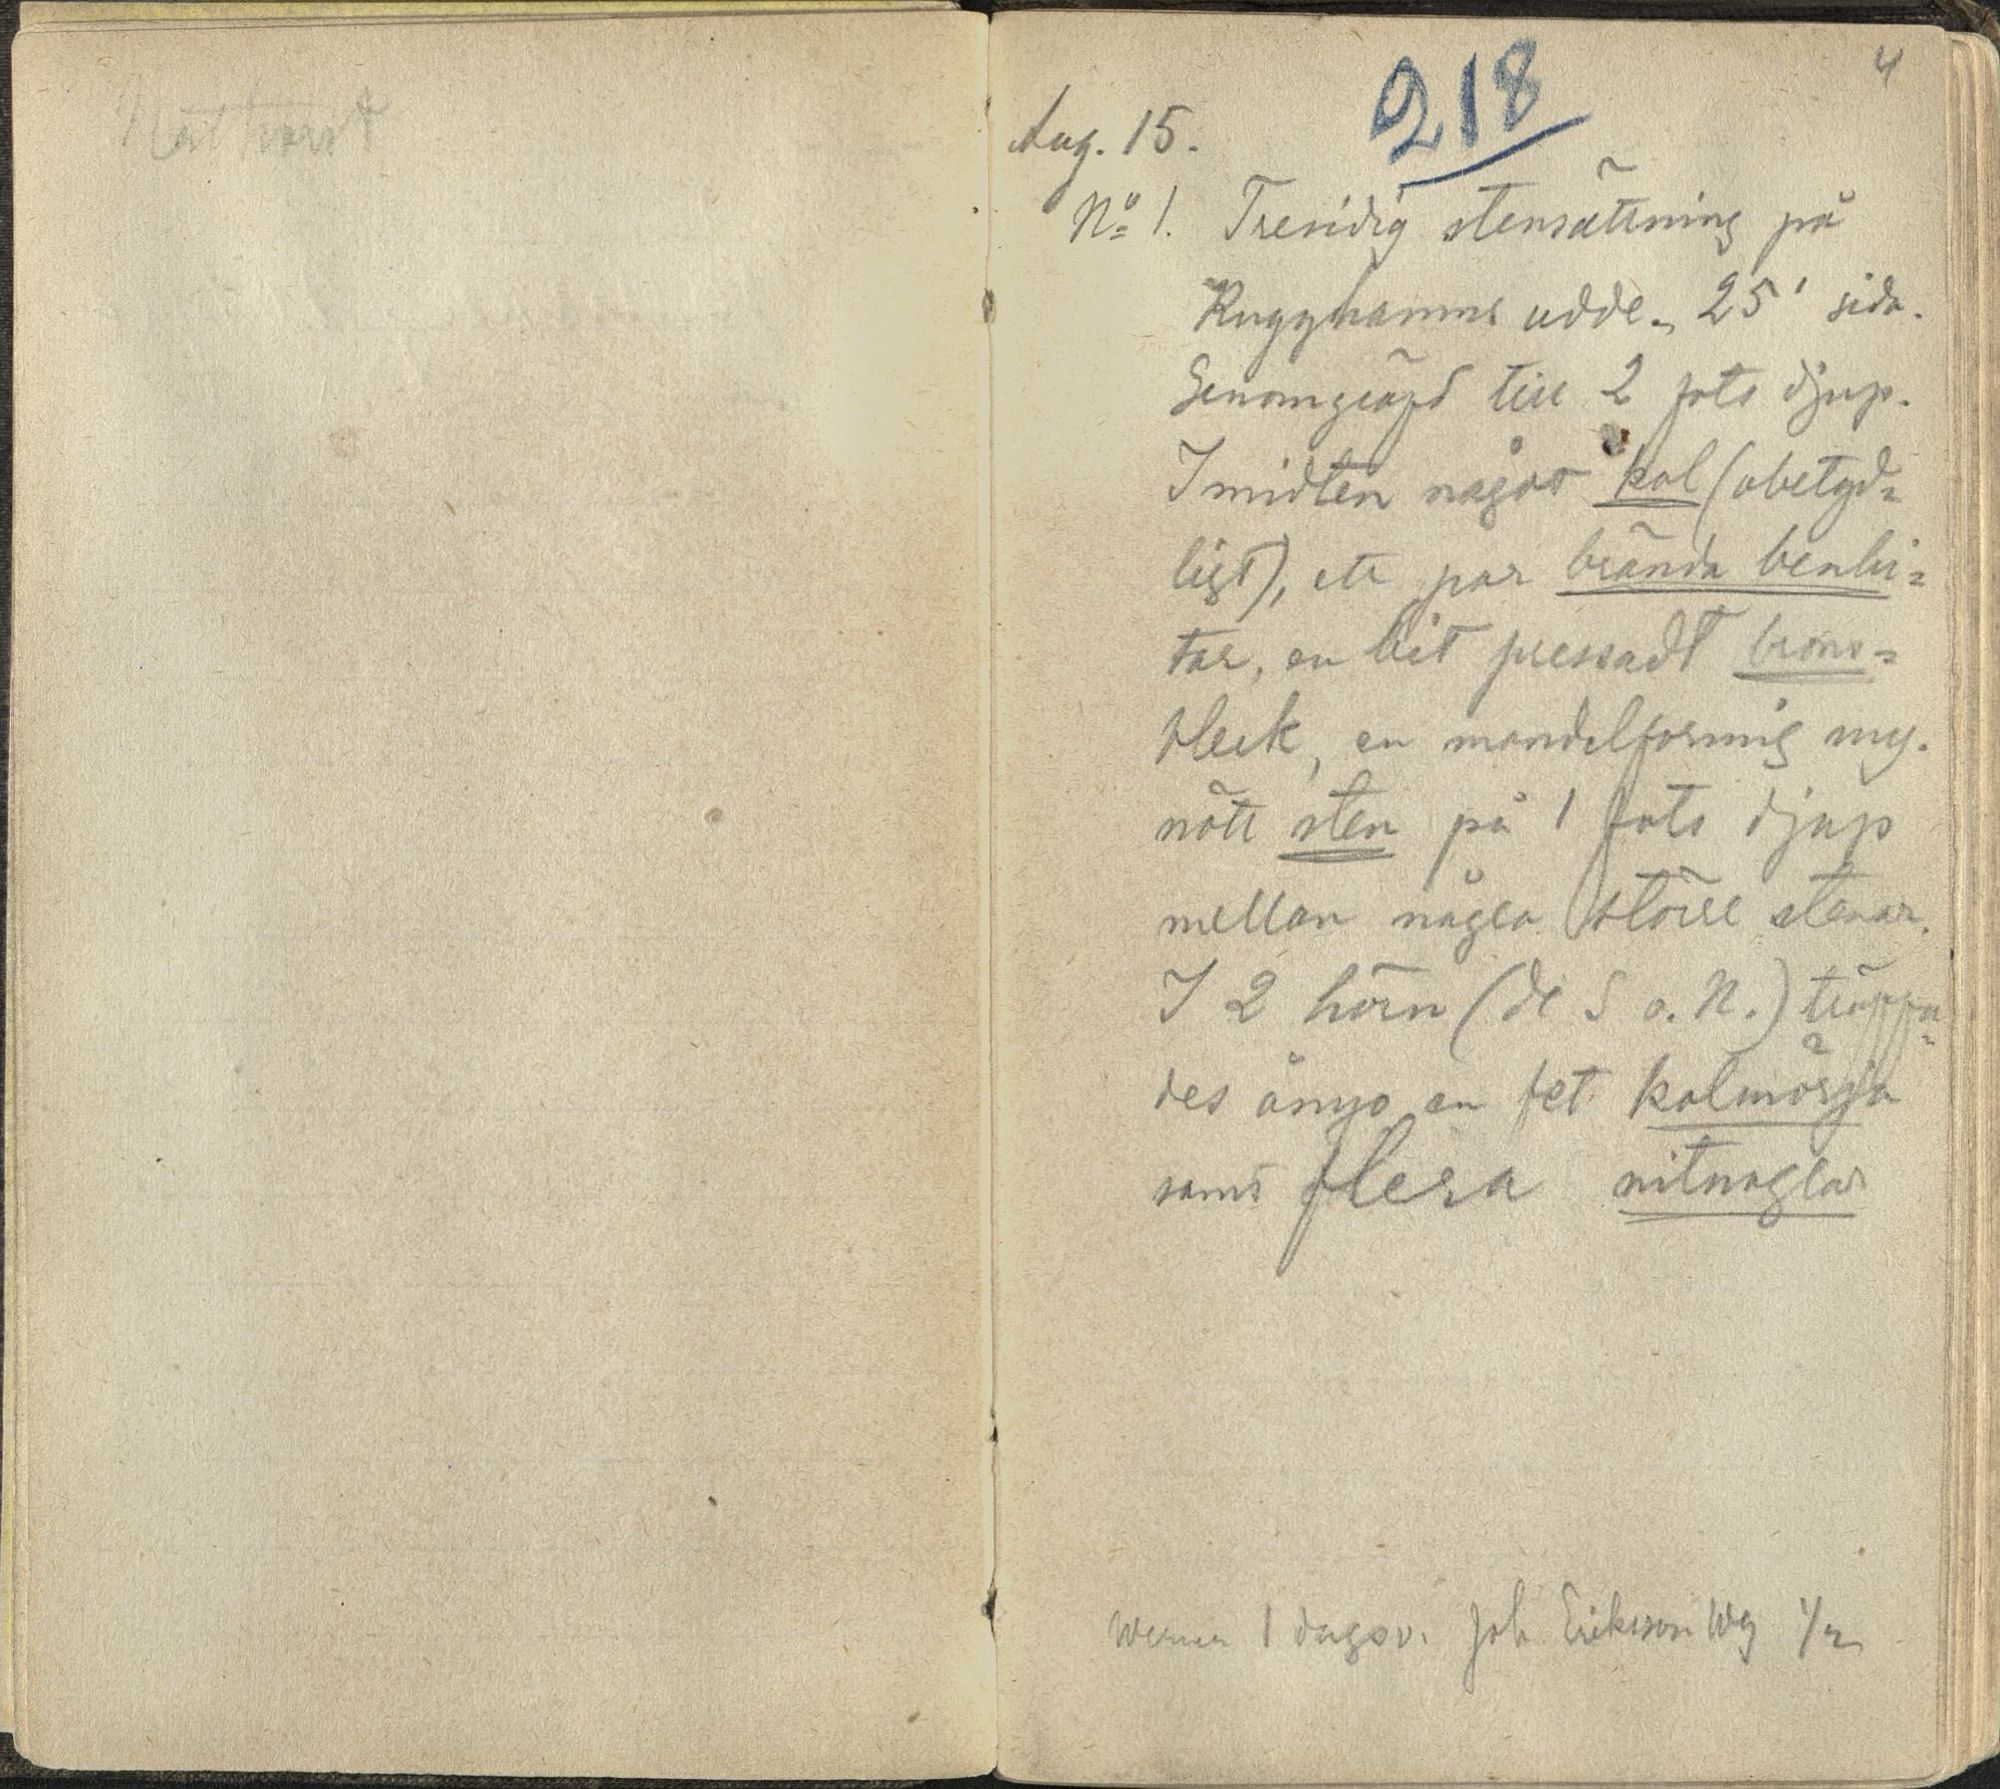 Nathorst
4
218
Aug. 15.
No 1. Tresidig stensättning på
udde. 25' sida.
Genomgräfd till 2 fots djup.
I midten något kol (obetyd=
ligt), ett par brända benbi=
tar, en bit pressadt brons=
bleck, en mandelformig my.
nött sten på 1 fots djup
mellan några större stenar.
I 2 hörn (de S o. N.) träffa=
des ånyo en fet kolmörja
samt flera nitnaglar
Werner 1 dagsv. Joh Eriksson 1/2